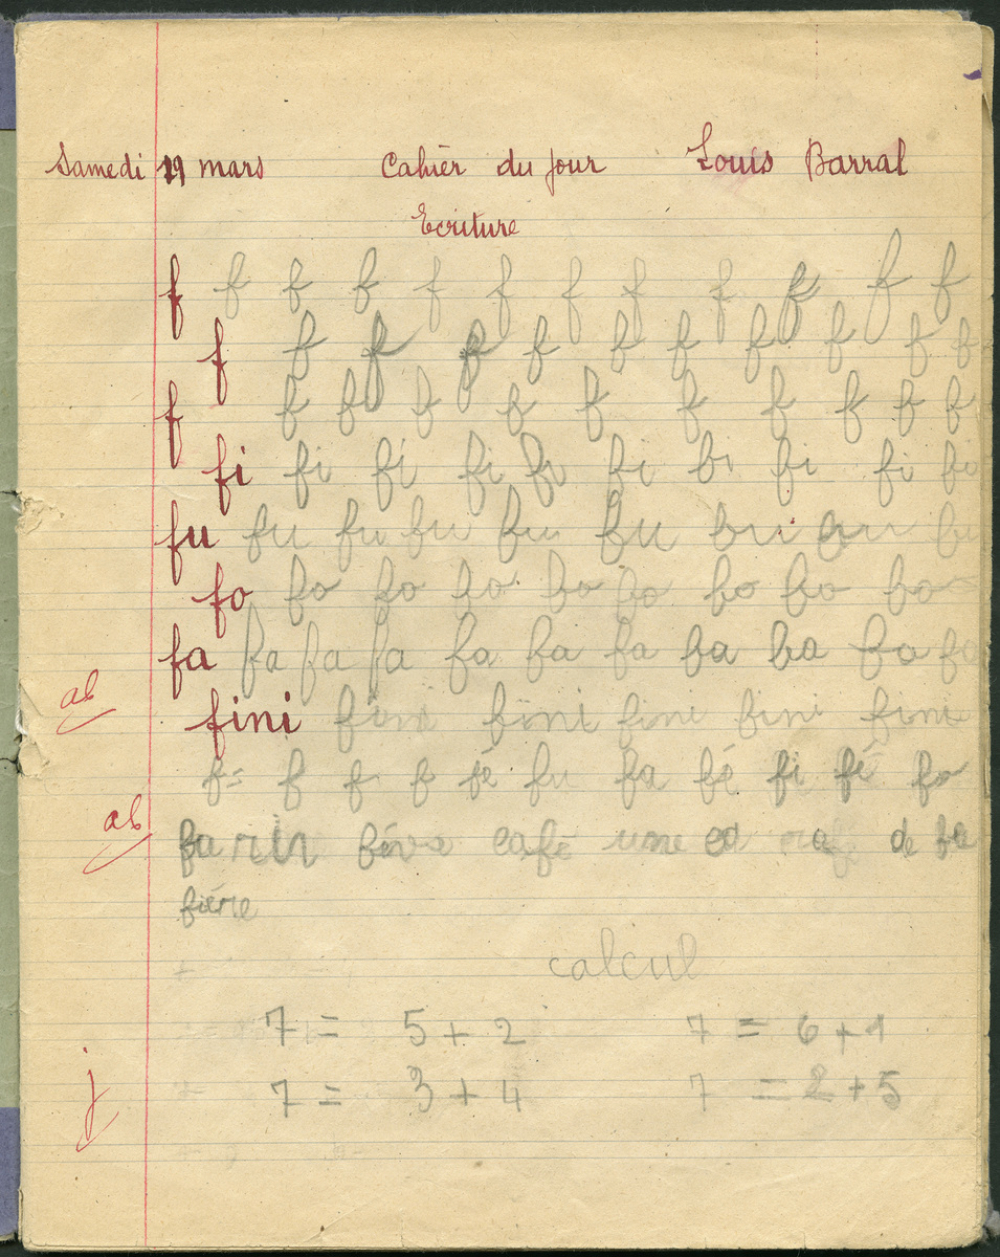 Samedi 11 mars Cahier du jour Louis Barral
Ecriture
f f f f f f f f f f f f
f f f f f f f f f f f
f f f f f f f f f f f
fi fi fi fi fi fi fi fi fi fi
fu fu fu fu fu fu fu fu fu
fo fo fo fo fo fo fo fo fo
fa fa fa fa fa fa fa fa fa fa fa
ab
fini fini fini fini fini fini
f= f f f fé fu fa fé fi fé fo
ab
farin féve café une de fa
fiére
calcul
7 = 5 + 2 7 = 6 + 1
j
7 = 3 + 4 7 = 2 + 5